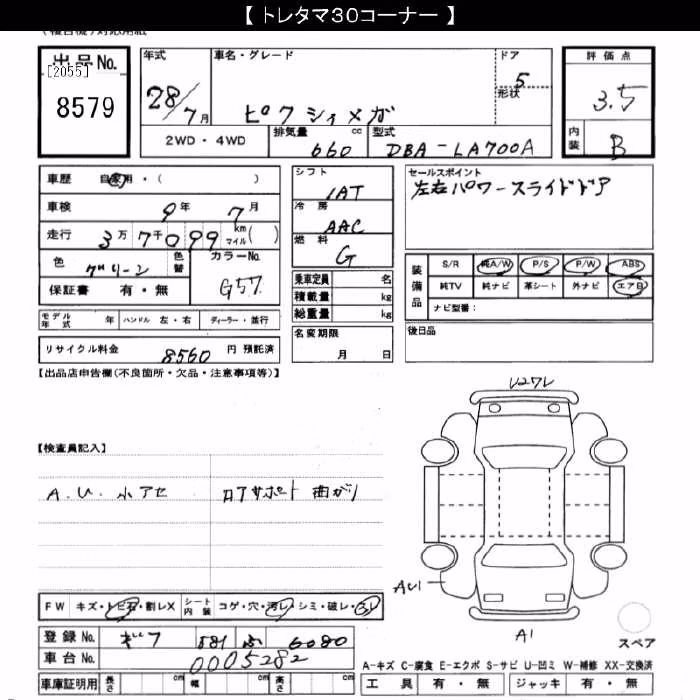 【 トレタマ30コーナー 】
出品No.
[2055]
8579
年式
28/7月
車名・グレード
ピクシィメガ
ドア
5
形状
評価点
3.5
内装
B
2WD・4WD
排気量
660 cc
型式
DBA-LA700A
車歴 自家用・( )
車検 9年 7月
走行 3万7千099 km マイル( )
色 グリーン 色替
カラーNo. G57
保証書 有・無
シフト
IAT
冷房
AAC
燃料
G
乗車定員 名
積載量 kg
総重量 kg
名変期限
月 日
セールスポイント
左右パワースライドドア
装備品
S/R 純A/W P/S P/W ABS
純TV 純ナビ 革シート 外ナビ エアB
ナビ型番:
後日品
モデル年式 年 ハンドル 左・右 ディーラー・並行
リサイクル料金 8560 円 預託済
【出品店申告欄(不良箇所・欠品・注意事項等)】
【検査員記入】
A.U. 小アセ
ロアサポート 曲がり
U2ワレ
AU1
A1
スペア
FW キズ・トビ石・割レX シート内装 コゲ・穴・汚レ・シミ・破レ・スレ
登録No. ギフ 581 ふ 6080
車台No. 0005282
車庫証明用 長さ cm 幅 cm 高さ cm
A-キズ C-腐食 E-エクボ S-サビ U-凹ミ W-補修 XX-交換済
工具 有・無 ジャッキ 有・無